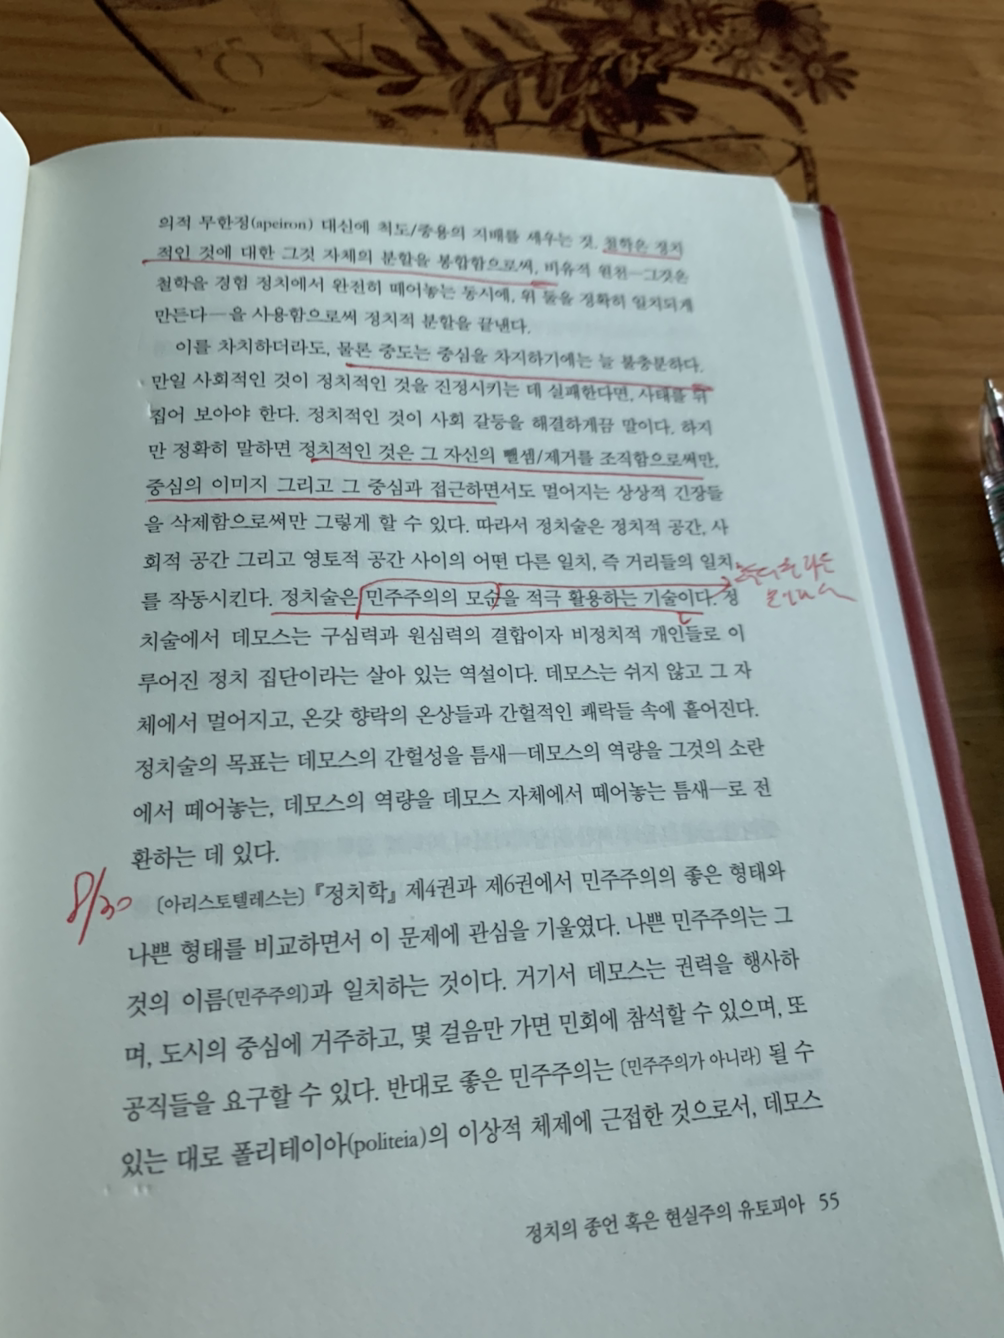 의적 무한정(apeiron) 대신에 척도/중용의 지배를 세우는 것. 철학은 정치
적인 것에 대한 그것 자체의 분할을 봉합함으로써, 비유적 원천—그것은
철학을 경험 정치에서 완전히 떼어놓는 동시에, 위 둘을 정확히 일치되게
만든다—을 사용함으로써 정치적 분할을 끝낸다.
이를 차치하더라도, 물론 중도는 중심을 차지하기에는 늘 불충분하다.
만일 사회적인 것이 정치적인 것을 진정시키는 데 실패한다면, 사태를 뒤
집어 보아야 한다. 정치적인 것이 사회 갈등을 해결하게끔 말이다. 하지
만 정확히 말하면 정치적인 것은 그 자신의 뺄셈/제거를 조직함으로써만,
중심의 이미지 그리고 그 중심과 접근하면서도 멀어지는 상상적 긴장들
을 삭제함으로써만 그렇게 할 수 있다. 따라서 정치술은 정치적 공간, 사
회적 공간 그리고 영토적 공간 사이의 어떤 다른 일치, 즉 거리들의 일치
를 작동시킨다. 정치술은 민주주의의 모순을 적극 활용하는 기술이다. 정
치술에서 데모스는 구심력과 원심력의 결합이자 비정치적 개인들로 이
루어진 정치 집단이라는 살아 있는 역설이다. 데모스는 쉬지 않고 그 자
체에서 멀어지고, 온갖 향락의 온상들과 간헐적인 쾌락들 속에 흩어진다.
정치술의 목표는 데모스의 간헐성을 틈새—데모스의 역량을 그것의 소란
에서 떼어놓는, 데모스의 역량을 데모스 자체에서 떼어놓는 틈새—로 전
환하는 데 있다.
8/30
〔아리스토텔레스는〕 『정치학』 제4권과 제6권에서 민주주의의 좋은 형태와
나쁜 형태를 비교하면서 이 문제에 관심을 기울였다. 나쁜 민주주의는 그
것의 이름〔민주주의〕과 일치하는 것이다. 거기서 데모스는 권력을 행사하
며, 도시의 중심에 거주하고, 몇 걸음만 가면 민회에 참석할 수 있으며, 또
공직들을 요구할 수 있다. 반대로 좋은 민주주의는 〔민주주의가 아니라〕 될 수
있는 대로 폴리테이아(politeia)의 이상적 체제에 근접한 것으로서, 데모스
정치의 종언 혹은 현실주의 유토피아 55